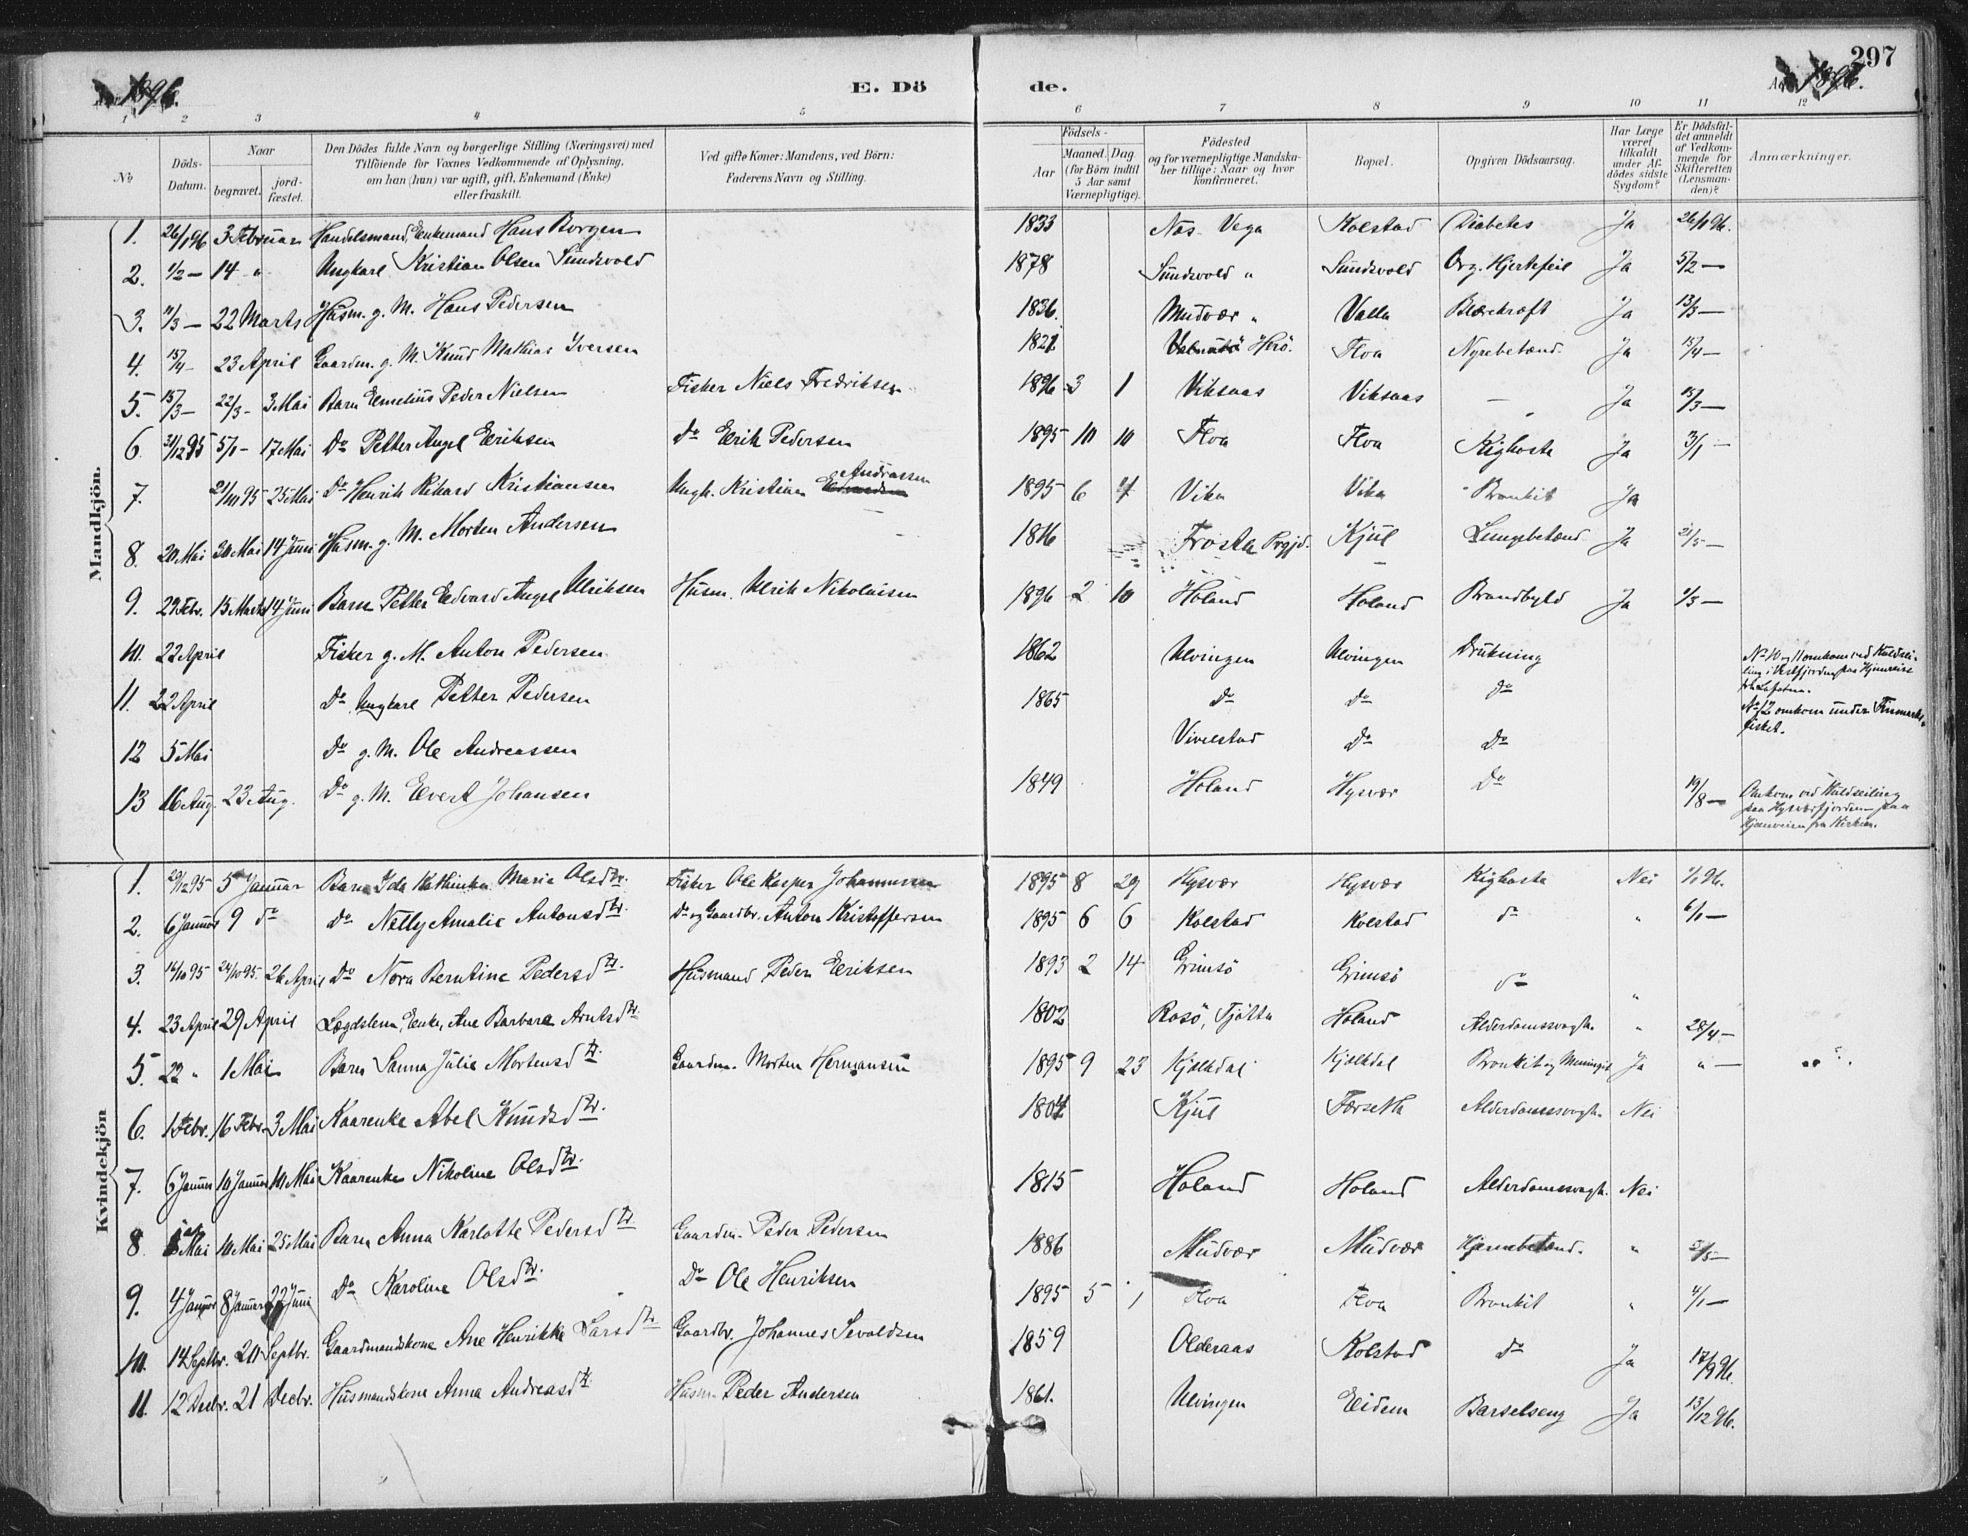 297
1896. E. Dö de. 1896.
1 2 3 4 5 6 7 8 9 10 11 12
No
Döds-Datum.
Naar
begravet.
jord-fæstet.
Den Dödes fulde Navn og borgerlige Stilling (Næringsvei) med
Tilföiende for Voxnes Vedkommende af Oplysning,
om han (hun) var ugift, gift, Enkemand (Enke)
eller fraskilt.
Ved gifte Koner: Mandens, ved Börn:
Faderens Navn og Stilling.
Födsels-
Aar
Maaned. Dag
(for Börn indtil
5 Aar samt
Værnepligtige).
Födested
og for værnepligtige Mandska-
ber tillige: Naar og hvor
konfirmeret.
Bopæl.
Opgiven Dödsaarsag.
Har Læge
været
tilkaldt
under Af-
dödes sidste
Sygdom?
Er Dödsfal-
det anmeldt
af Vedkom-
mende for
Skifteretten
(Lensman-
den)?
Anmærkninger.
Mandkjön.
1. 26/1 96 3 Februar Handelsmand, Enkemand Hans Borgen 1833 Næs Vega Kolstad Diabetes Ja 26/1 96.
2. 1/2 — 14 " Ungkarl Kristian Olsen Sundsvold 1878 Sundsvold " Sundsvold Org. Hjertefeil Ja 5/2 —
3. 11/3 — 22 Marts Husm. g. M. Hans Pedersen 1836. Mudvær " Valla Blærekræft Ja 13/3 —
4. 15/4 — 23 April Gaardm. g. M. Knud Mathias Iversen 1821 Herö. Floa Nyrebetænd. Ja 15/4 —
5. 15/3 — 22/3 — 3 Mai Barn Emelius Peder Nielsen Fisker Niels Fredriksen 1896 3 1 Viksaas Viksaas — Ja 15/3 —
6 31/12 95 5/1 — 17 Mai Do Petter Angel Eriksen Do Erik Pedersen 1895 10 10 Floa Floa Kighoste Ja 3/1 —
7 95 25 Mai Do Henrik Rikard Kristiansen Ungk. Kristian Andreassen 1895 6 4 Vika Vika Bronkit Ja
8. 20 Mai 30 Mai 14 Juni Husm. g. M. Morten Andersen 1816 Frosta Prgjd. Kjul Lungebetænd Ja 21/5 —
9. 29 Febr. 15 Marts 14 Juni Barn Petter Edvard Angel Ulriksen Husm. Ulrik Nikolaisen 1896 2 10 Holand Holand Brandbyld Ja 1/3 —
10. 22 April Fisker g. M. Anton Pedersen 1862 Ulvingen Ulvingen Drukning No 10 og 11 omkom ved Kuldsei-
ling i Vestfjorden paa Hjemreise
fra Lofoten.
11. 22 April Do Ungkarl Petter Pedersen 1865 Do Do Do
No 12 omkom under Finmarks-
fisket.
12 5 Mai Do g. M. Ole Andreassen Vivelstad Do Do
13 16 Aug. 23 Aug. Do g. M. Evert Johansen 1849 Holand Hysvær Do 19/8 — Omkom ved Kuldseiling
paa Hysværfjorden paa
Hjemveien fra Kirken.
Kvindekjön
1. 29/12 95 5 Januar Barn Ida Kathinka Maria Olsdtr. Fisker Ole Kasper Johannesen 1895 8 29 Hysvær Hysvær Kighoste Nei 1/1 96.
2. 6 Januar 9 do Do Nelly Amalie Antonsdtr. Do og Gaardbr. Anton Kristoffersen 1895 6 6 Kolstad Kolstad do " 6/1 —
3. 14/10 95 24/10 95. 26 April Do Nora Berntine Pedersdtr. Husmand Peder Eriksen 1893 2 14 Grimsö Grimsö do "
4. 23 April 29 April Lægdslem, Enke, Ane Barbara Arntsdtr. 1802 Rosö, Tjötta Holand Alderdomssvagh. " 28/4 —
5. 22 " 1 Mai Barn Sanna Julie Mortensdtr. Gaardm. Morten Hermansen 1895 9 23 Kjølkdal Kjølkdal Bronkit og Meningit Ja " —
6. 1 Febr. 16 Febr. 3 Mai Kaarenke Abel Knudsdtr. 1804 Kjul Færseth Alderdomssvagh. Nei
7. 6 Januar 10 Januar 10 Mai Kaarenke Nikoline Olsdtr. 1815 Holand Holand Alderdomssvagh. Nei
8. Mai 10 Mai 25 Mai Barn Anna Karlotte Pedersdtr. Gaardm. Peder Pedersen 1886 Mudvær Mudvær Hjernebetænd. " 5/5 —
9. 4 Januar 8 Januar 22 Juni Do Karoline Olsdtr. Do Ole Henriksen 1895 5 1 Floa Floa Bronkit " 4/1 —
10. 14 Septbr. 20 Septbr. Gaardmandskone Ane Henrikke Larsdtr. Gaardbr. Johannes Sevaldsen 1859 Olderaas Kolstad Do Ja 17/9 96.
11. 12 Decbr. 21 Decbr. Husmandskone Anna Andreasdtr. Husm. Peder Andersen 1861. Ulvingen Eidem Barselseng Ja 13/12 96.